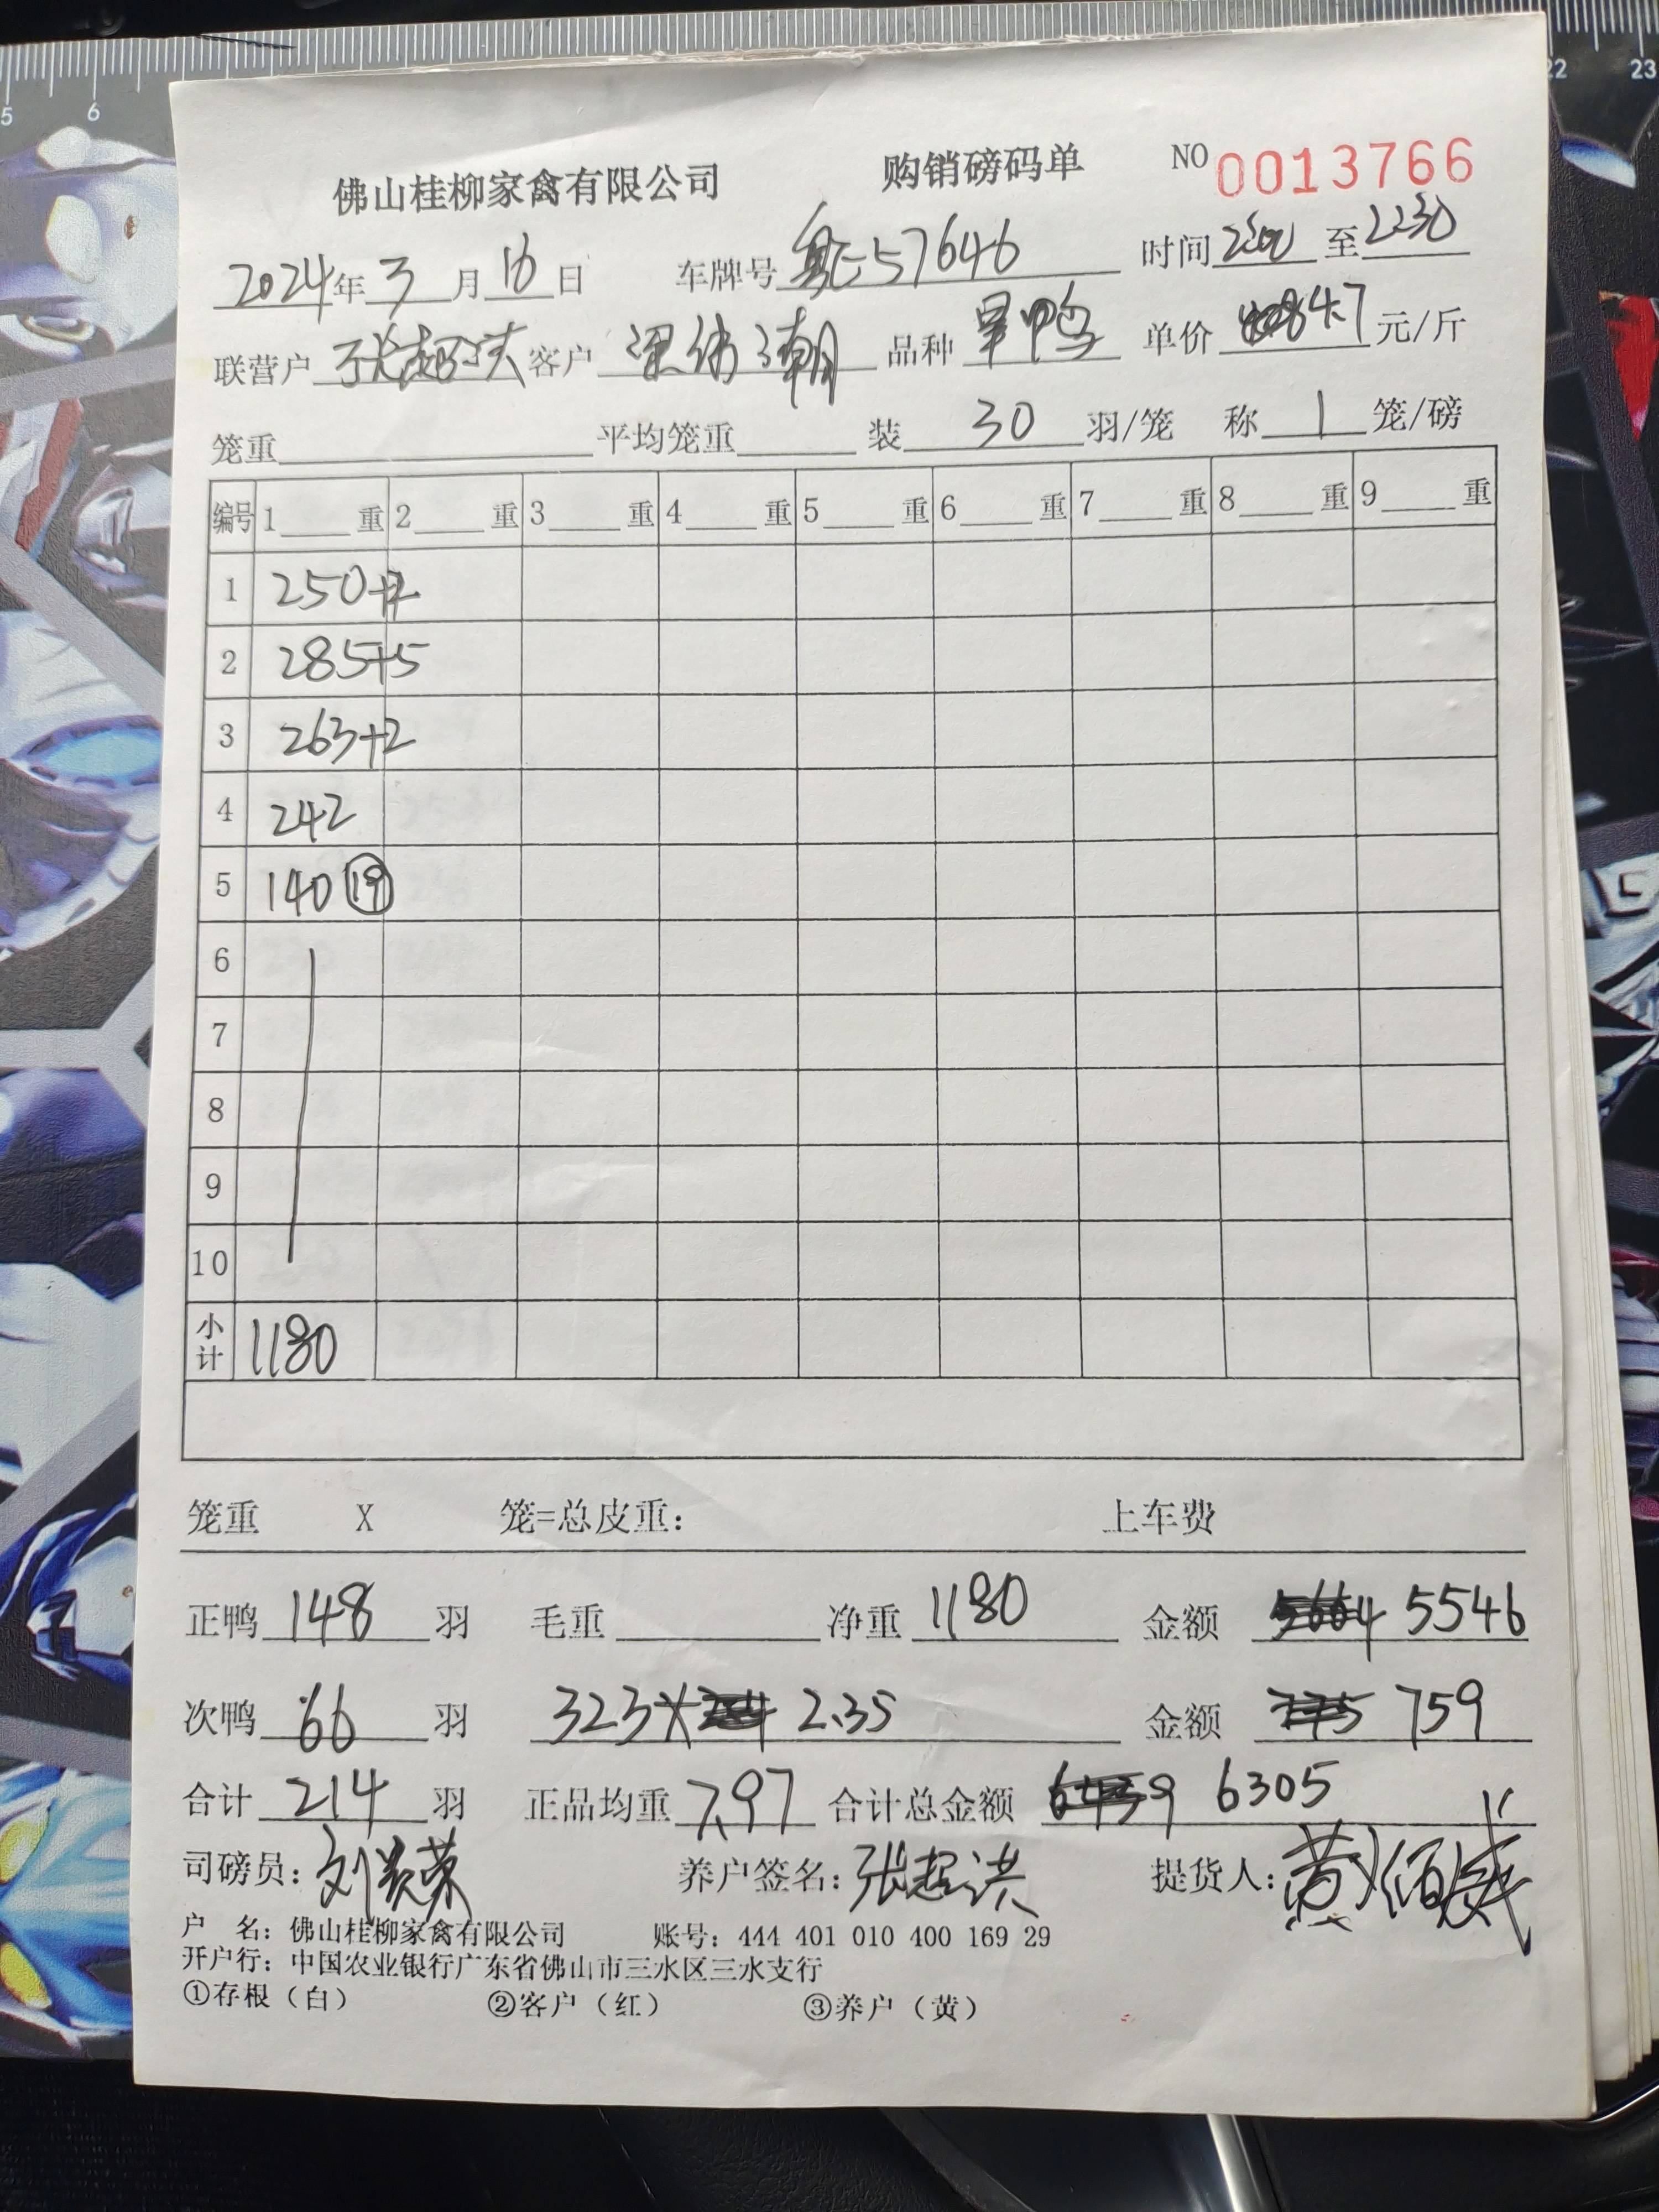 佛山桂柳家禽有限公司 购销磅码单 NO 0013766
2024年3月16日 车牌号 粤E57646 时间 2200 至 2230
联营户 张超洪 客户 梁伟潮 品种 旱鸭 单价 4.7 元/斤
笼重 平均笼重 装 30 羽/笼 称 1 笼/磅
编号 1 重 2 重 3 重 4 重 5 重 6 重 7 重 8 重 9 重
1 250+2
2 285+5
3 263+2
4 242
5 140 ⑲
6
7
8
9
10
小计 1180
笼重 X 笼=总皮重: 上车费
正鸭 148 羽 毛重 净重 1180 金额 5546
次鸭 66 羽 323X 2.35 金额 759
合计 214 羽 正品均重 7.97 合计总金额 6305
司磅员: 养户签名: 张超洪 提货人: 黄佰威
户 名: 佛山桂柳家禽有限公司 账号: 444 401 010 400 169 29
开户行: 中国农业银行广东省佛山市三水区三水支行
①存根（白） ②客户（红） ③养户（黄）
5 6 22 23